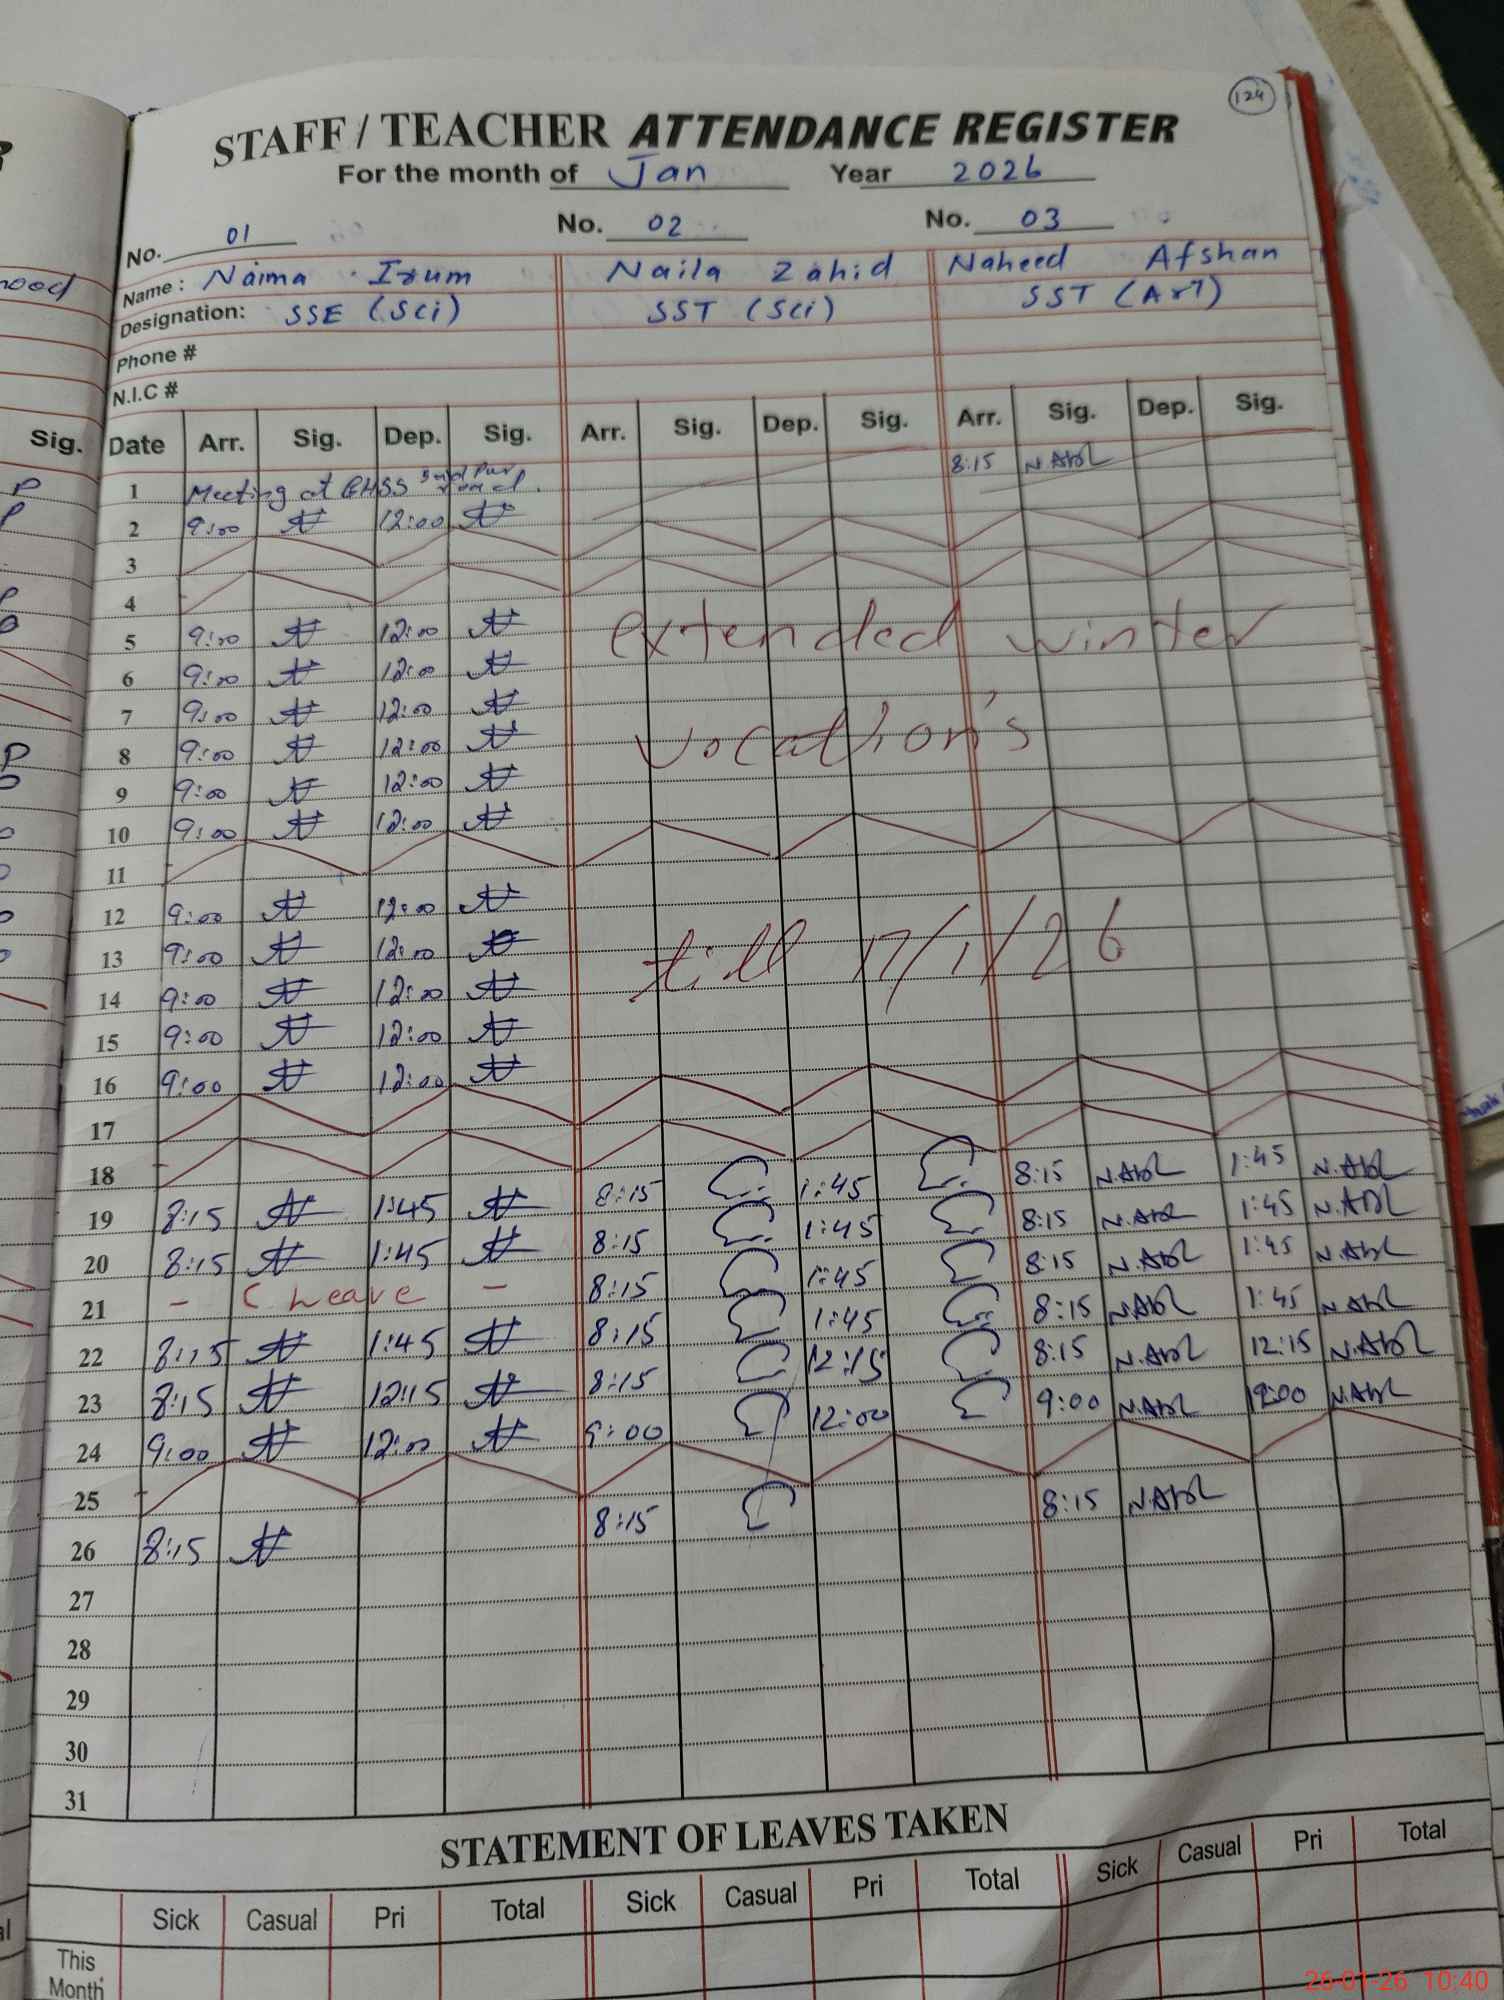 124
STAFF / TEACHER ATTENDANCE REGISTER
For the month of Jan Year 2026
No. 01 No. 02 No. 03
Name : Naima Irum Naila Zahid Naheed Afshan
Designation: SSE (Sci) SST (Sci) SST (Art)
Phone #
N.I.C #
Sig. Date Arr. Sig. Dep. Sig. Arr. Sig. Dep. Sig. Arr. Sig. Dep. Sig.
1 Meeting at GHSS 8:15
2 9:00 12:00
3
4
5 9:00 12:00 extended winter
6 9:00 12:00
7 9:00 12:00
8 9:00 12:00 vocation's
9 9:00 12:00
10 9:00 12:00
11
12 9:00 12:00
13 9:00 12:00 till 17/1/26
14 9:00 12:00
15 9:00 12:00
16 9:00 12:00
17
18
19 8:15 1:45 8:15 1:45 8:15 1:45
20 8:15 1:45 8:15 1:45 8:15 1:45
21 - C Leave - 8:15 1:45 8:15 1:45
22 8:15 1:45 8:15 1:45 8:15 1:45
23 8:15 12:15 8:15 12:15 8:15 12:15
24 9:00 12:00 9:00 12:00 9:00 12:00
25
26 8:15 8:15 8:15
27
28
29
30
31
STATEMENT OF LEAVES TAKEN
Sick Casual Pri Total Sick Casual Pri Total Sick Casual Pri Total
This
Month
26-01-26 10:40